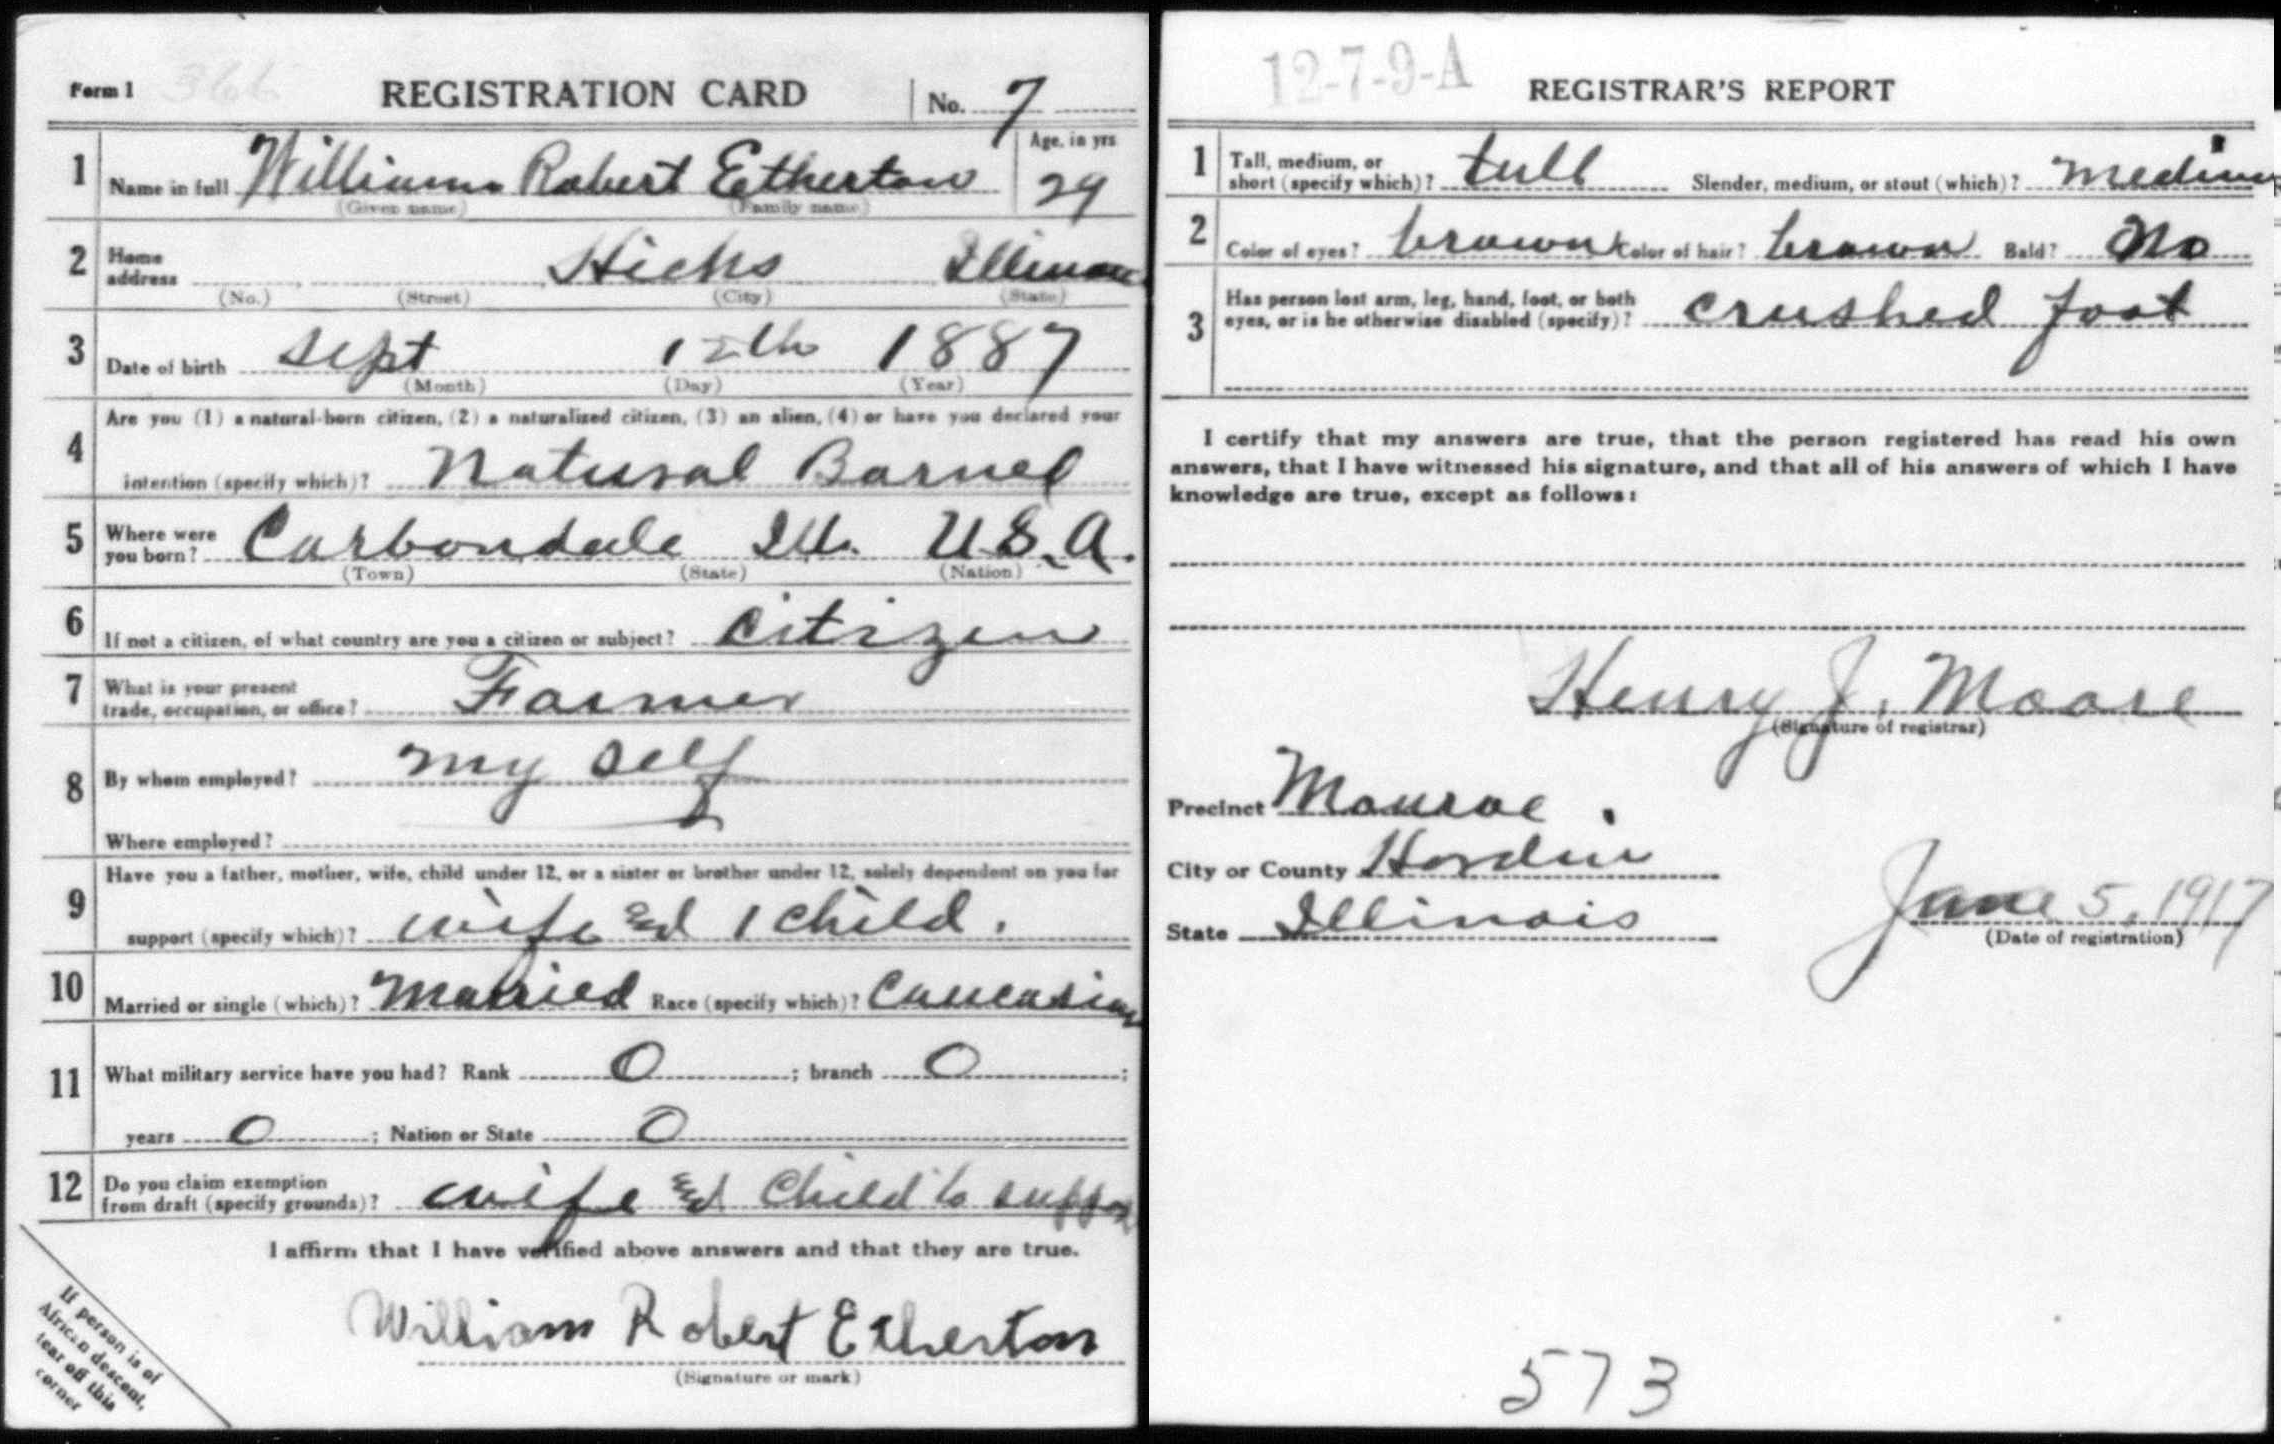 Form 1 366 REGISTRATION CARD No. 7
1 Name in full William Robert Etherton Age, in yrs 29
(Given name) (Family name)
2 Home address Hicks Illinois
(No.) (Street) (City) (State)
3 Date of birth Sept 12th 1887
(Month) (Day) (Year)
4 Are you (1) a natural-born citizen, (2) a naturalized citizen, (3) an alien, (4) or have you declared your
intention (specify which)? Natural Borned
5 Where were you born? Carbondale Ill. U.S.A.
(Town) (State) (Nation)
6 If not a citizen, of what country are you a citizen or subject? Citizen
7 What is your present
trade, occupation, or office? Farmer
8 By whom employed? my self
Where employed?
9 Have you a father, mother, wife, child under 12, or a sister or brother under 12, solely dependent on you for
support (specify which)? wife and 1 child.
10 Married or single (which)? Married Race (specify which)? Caucasian
11 What military service have you had? Rank 0 ; branch 0 ;
years 0 ; Nation or State 0
12 Do you claim exemption
from draft (specify grounds)? wife and Child to support
I affirm that I have verified above answers and that they are true.
William Robert Etherton
(Signature or mark)
If person is of
African descent,
tear off this
corner
12-7-9-A REGISTRAR'S REPORT
1 Tall, medium, or
short (specify which)? tall Slender, medium, or stout (which)? Medium
2 Color of eyes? brown Color of hair? brown Bald? No
3 Has person lost arm, leg, hand, foot, or both
eyes, or is he otherwise disabled (specify)? crushed foot
I certify that my answers are true, that the person registered has read his own
answers, that I have witnessed his signature, and that all of his answers of which I have
knowledge are true, except as follows:
Henry J. Moore
(Signature of registrar)
Precinct Monroe.
City or County Hardin
State Illinois June 5, 1917
(Date of registration)
573